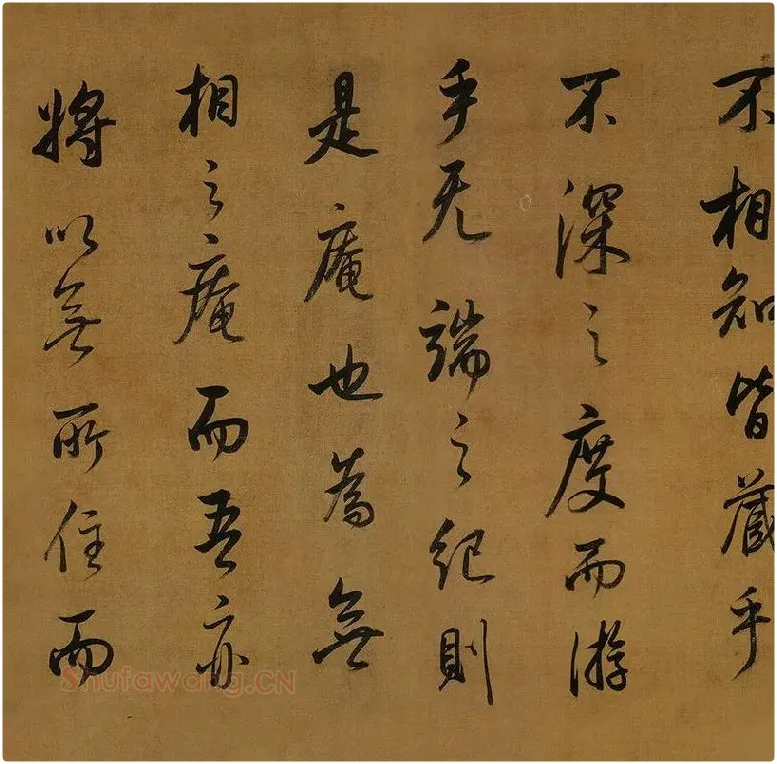 不相知皆藏乎
不深之度而游
乎无端之纪則
是庵也為無
相之庵而吾亦
將以無所住而
Shufawang.CN